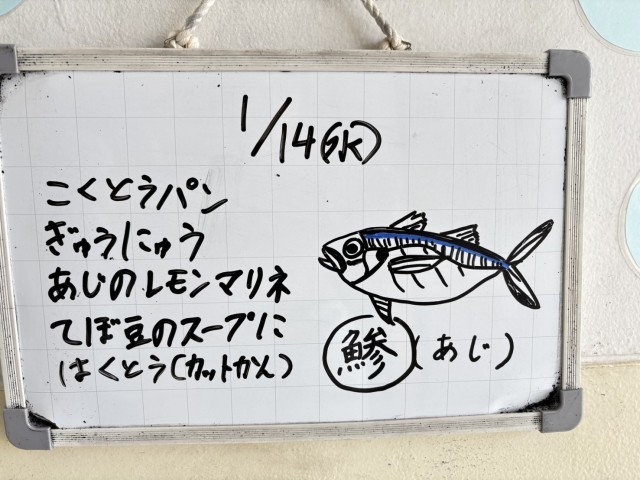 1/14(水)
こくとうパン
ぎゅうにゅう
あじのレモンマリネ
てぼ豆のスープに
はくとう(カットかん)
鯵(あじ)